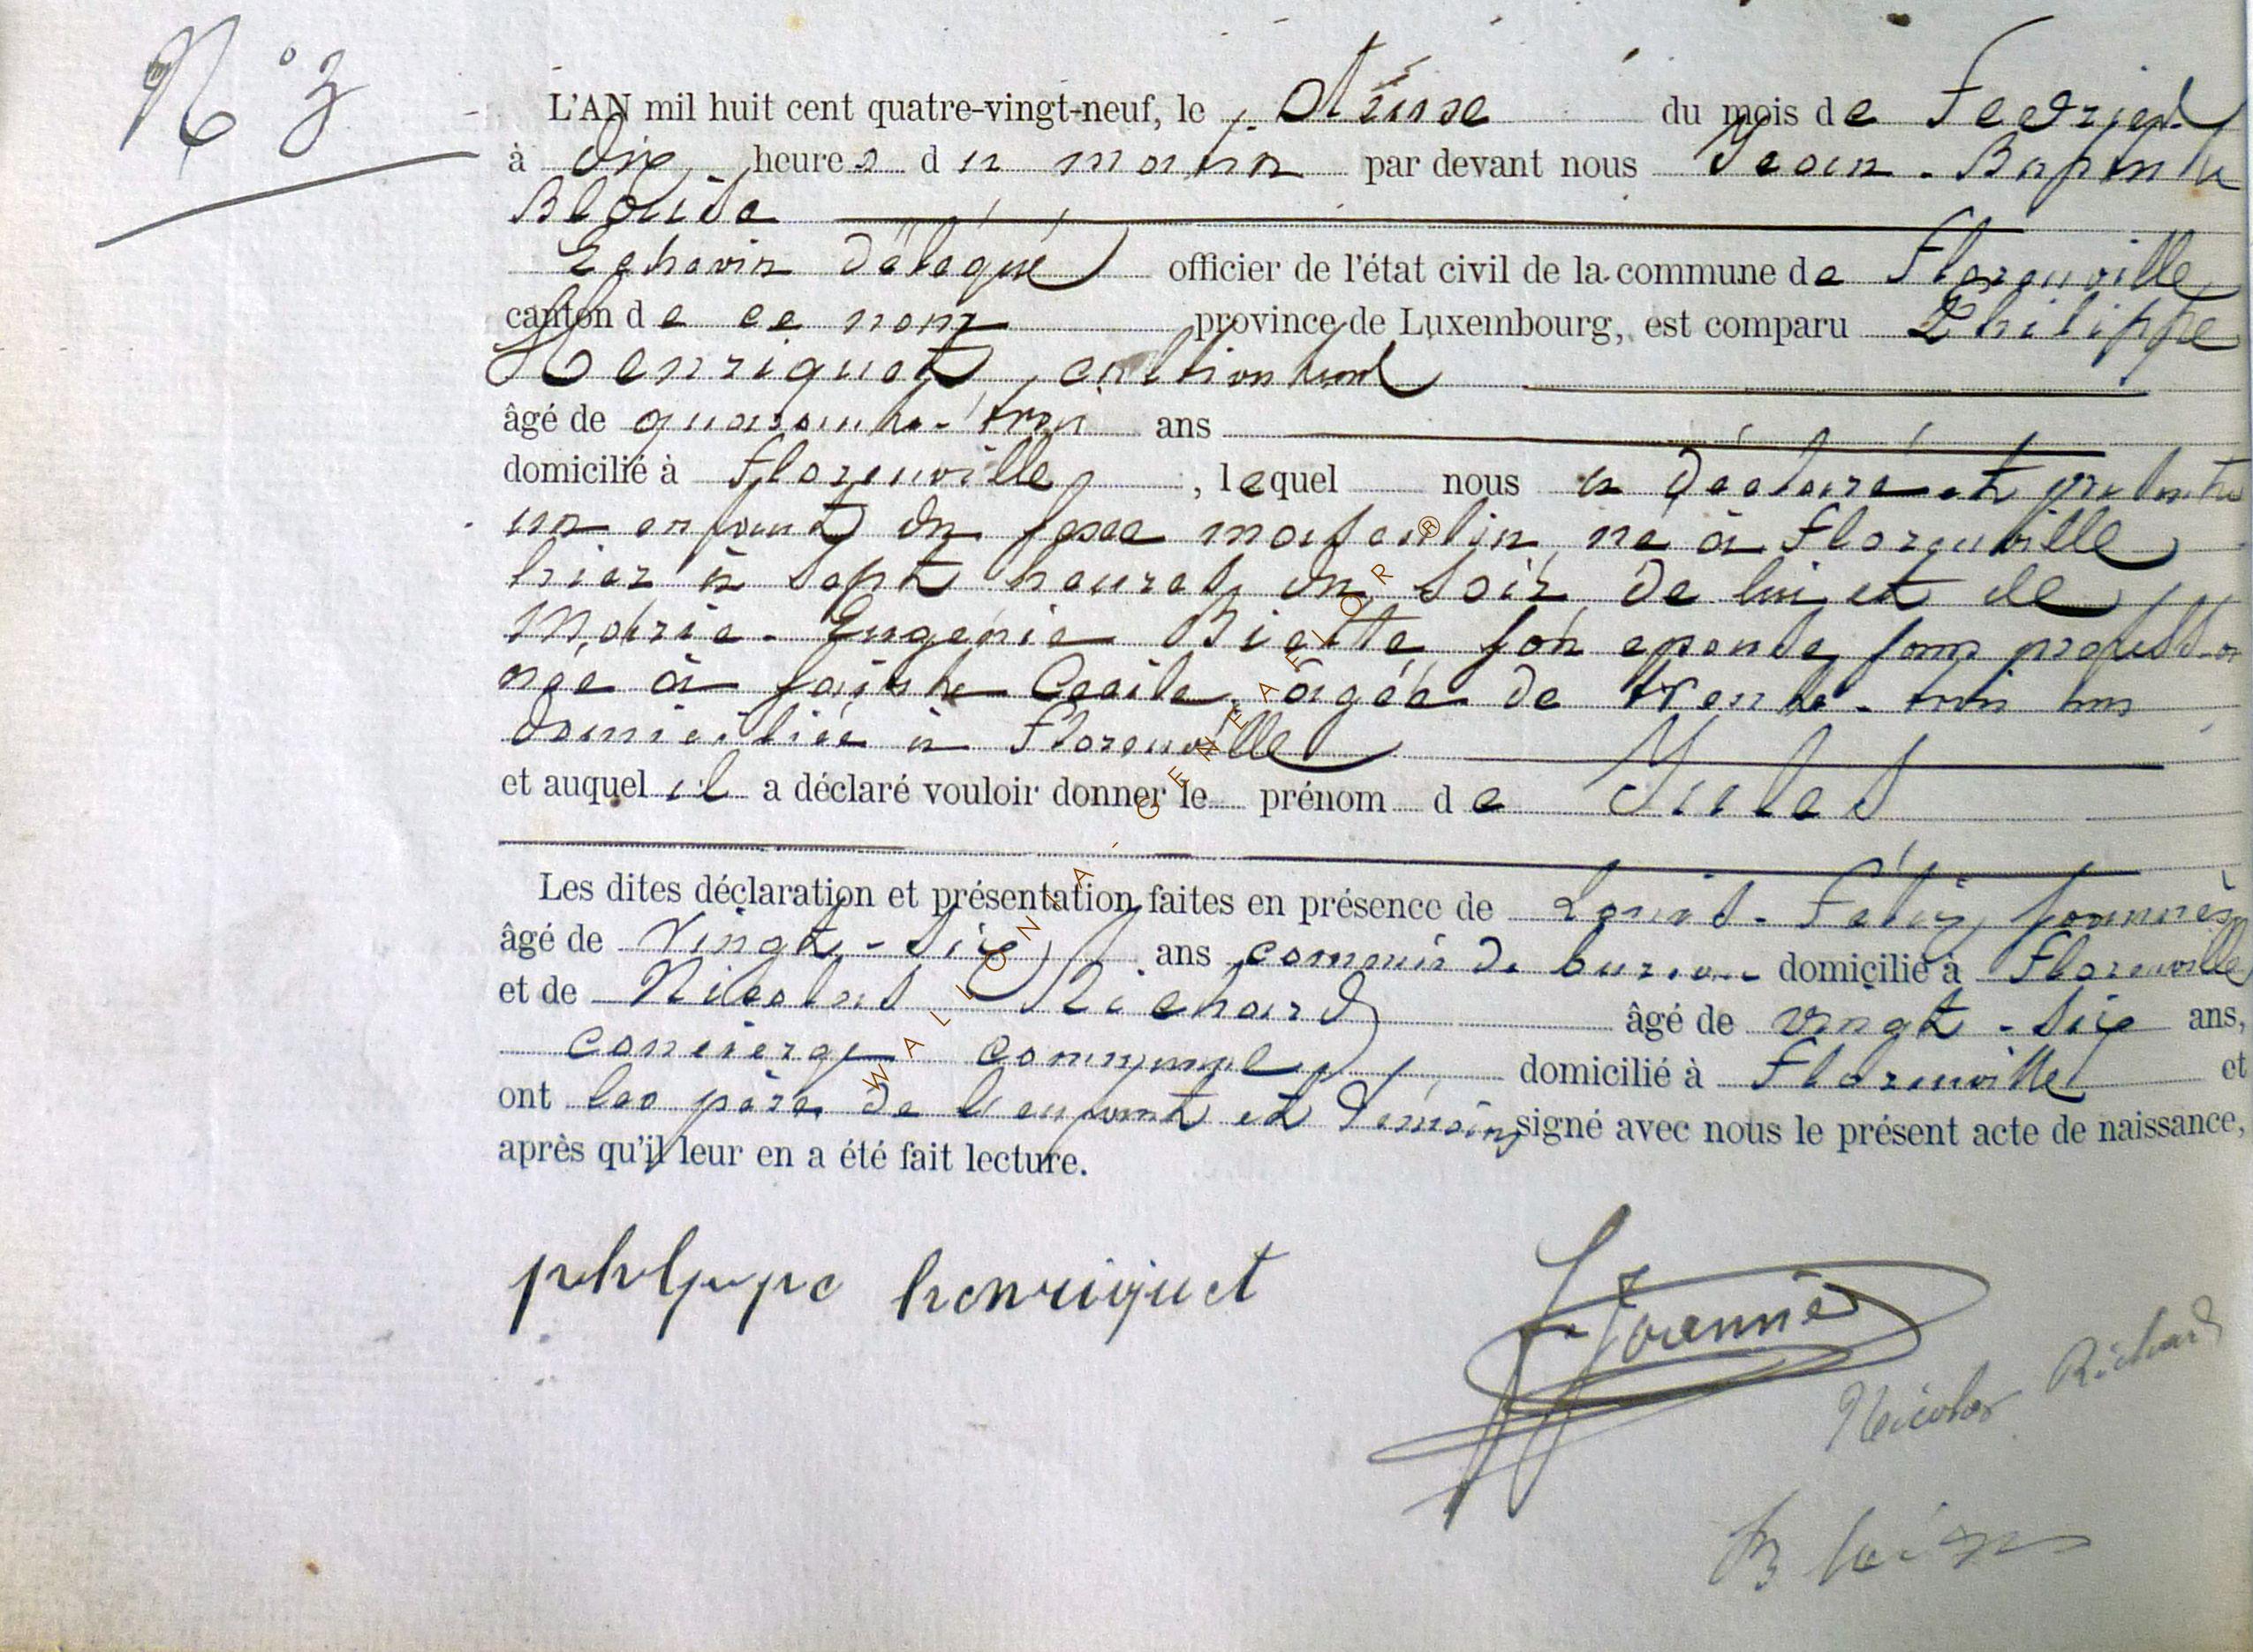 N° 3
L'AN mil huit cent quatre-vingt-neuf, le du mois de Fevrier
à dix heures du matin par devant nous Jean-Baptiste
Echevin délégué officier de l'état civil de la commune de Florenville
canton de ce nom province de Luxembourg, est comparu Philippe
Henriquet, cultivateur
âgé de quarante-trois ans
domicilié à Florenville, lequel nous a déclaré et présenté
un enfant du sexe masculin, né à Florenville
hier à sept heures du soir, de lui et de
Marie-Eugénie son epouse, sans profession
née à Sainte Cecile, âgée de trente-trois ans
domiciliée à Florenville
et auquel il a déclaré vouloir donner le prénom de Jules
Les dites déclaration et présentation faites en présence de Louis-Félix Joannès
âgé de vingt-six ans commis de bureau domicilié à Florenville
et de Nicolas Richard âgé de vingt-six ans,
concierge communal domicilié à Florenville et
ont les père de l'enfant et témoins signé avec nous le présent acte de naissance,
après qu'il leur en a été fait lecture.
henriquet
Joannès
Nicolas Richard
WALLONIA-GENEAFLOR ®